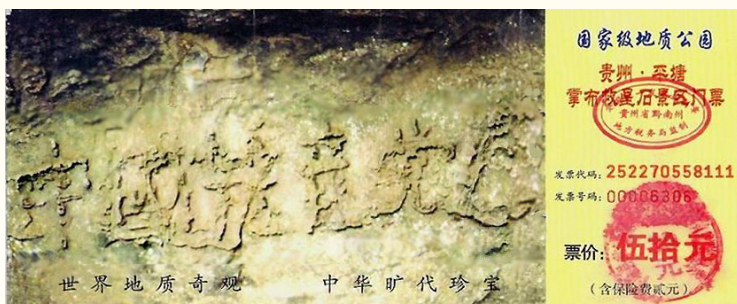 中國共產党亡
世界地质奇观 中华旷代珍宝
国家级地质公园
贵州·平塘
掌布救星石景区门票
贵州省黔南州
地方税务局监制
发票代码：252270558111
发票号码：00006306
票价：伍拾元
（含保险费贰元）